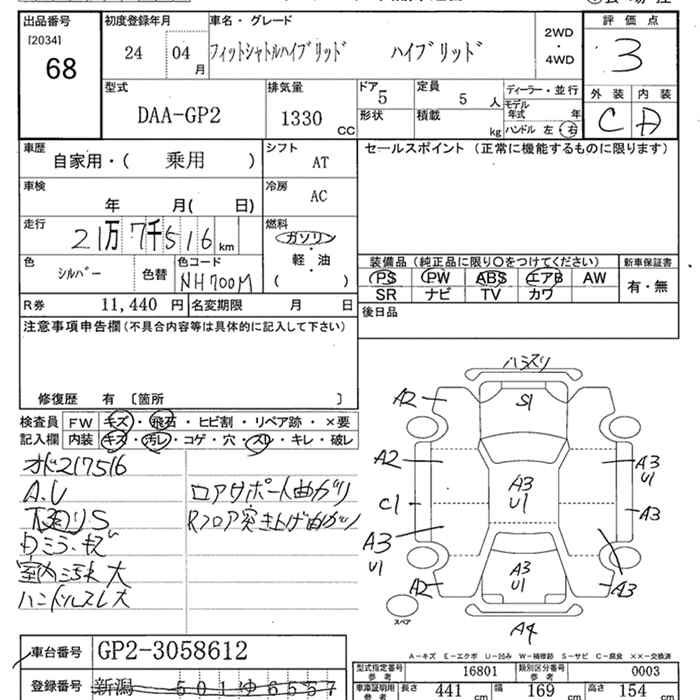 出品番号 初度登録年月 車名・グレード 評価点
[2034] 24 04月 フィットシャトルハイブリッド ハイブリッド 2WD・4WD 3
68
型式 排気量 ドア 5 定員 5人 ディーラー・並行 外装 内装
DAA-GP2 1330cc 形状 積載 kg モデル年式 年 C D
ハンドル 左・右
車歴 シフト セールスポイント (正常に機能するものに限ります)
自家用・( 乗用 ) AT
車検 冷房
年 月( 日) AC
走行 燃料
21万7千516km ガソリン・軽・油
( )
色 色替 色コード
シルバー NH700M
装備品 (純正品に限り○をつけてください) 新車保証書
PS PW ABS エアB AW 有・無
SR ナビ TV カワ
R券 11,440円 名変期限 月 日
後日品
注意事項申告欄(不具合内容等は具体的に記入して下さい)
修復歴 有 〔箇所 〕
検査員記入欄 FW キズ・飛石・ヒビ割・リペア跡・×要
内装 キズ・汚レ・コゲ・穴・スレ・キレ・破レ
オド217516
A.U ロアサポート曲がり
下廻りS Rフロア突き上げ曲ガリ
Dミラーキズ
室内汚れ大
ハンドルスレ大
ハラズリ
A2 S1
A2 A3 U1 A3 U1
C1 A3
A3 U1
A2 A3 U1 A3
スペア
A4
A-キズ E-エクボ U-凹み W-補修跡 S-サビ C-腐食 ××-交換済
車台番号 GP2-3058612
登録番号 新潟 501ゆ6557
型式指定番号 参考 16801 類別区分番号 参考 0003
車庫証明用 参考 長さ 441cm 幅 169cm 高さ 154cm